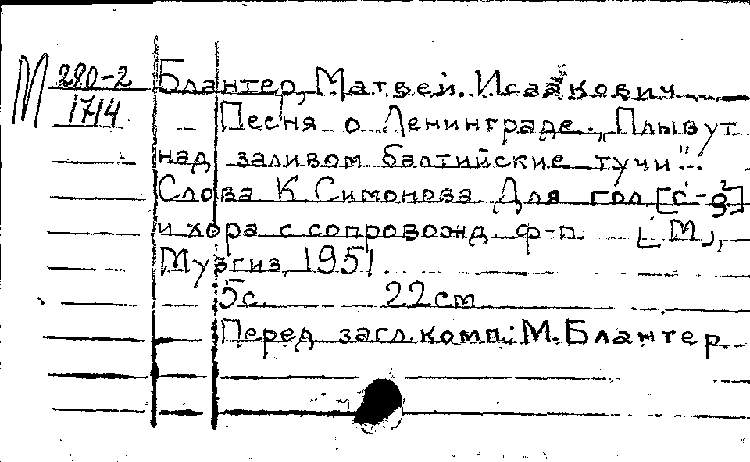 М 280-2
1714
Блантер, Матвей Исаакович
Песня о Ленинграде. „Плывут
над заливом балтийские тучи"...
Слова К. Симонова Для гол. [c-g²]
и хора с сопровожд. ф-п. [М.],
Музгиз, 1951
5с. 22см
Перед загл. комп.: М. Блантер